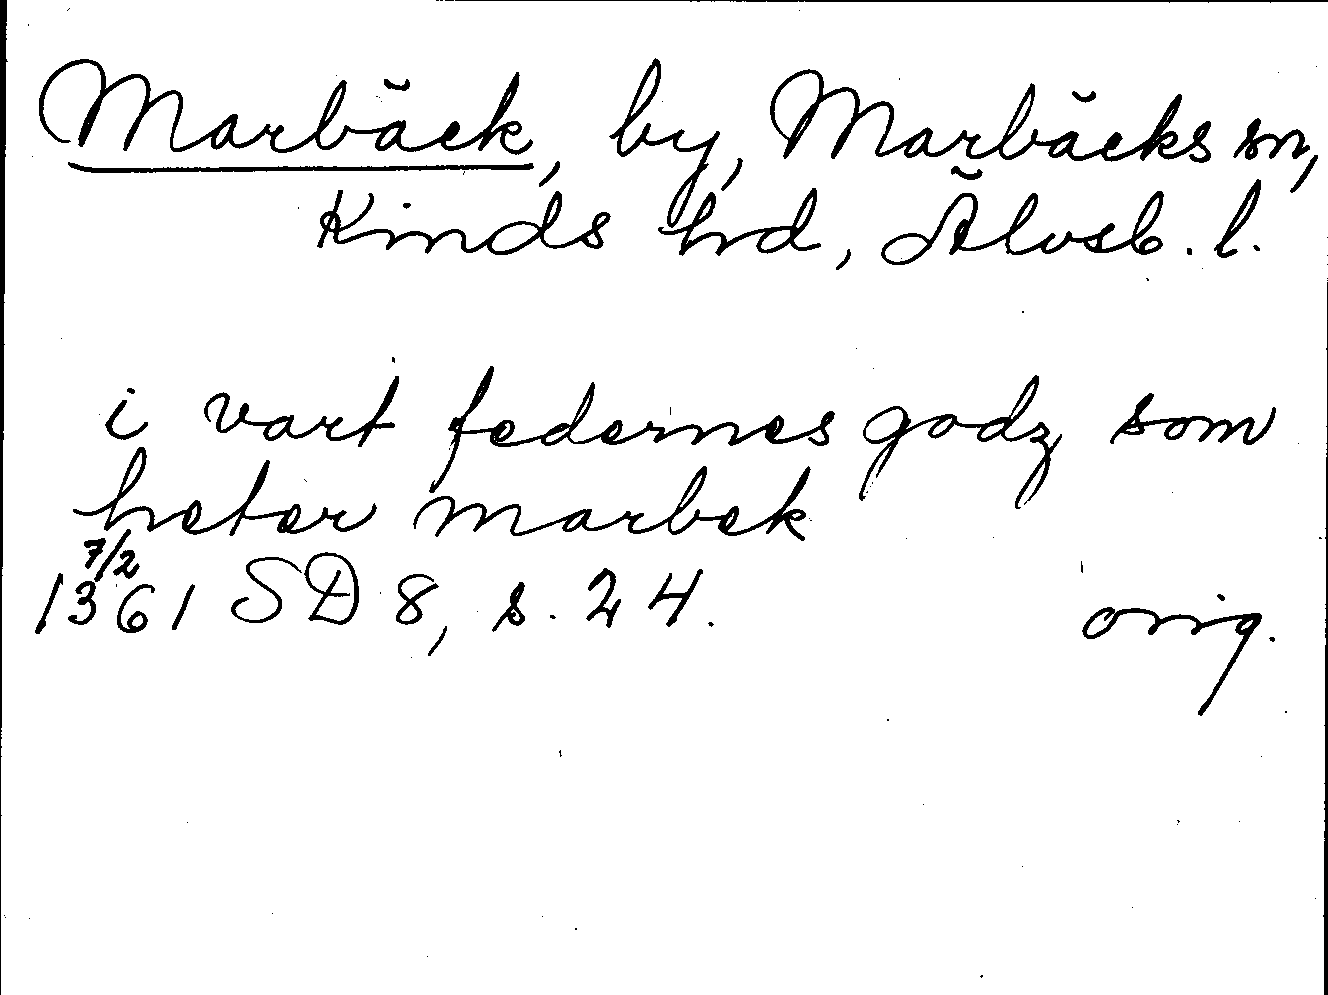 Marbäck, by, Marbäcks sn,
Kinds hd, Älvsb. l.
i vart fædernes godz som
heter marbek
7/2
1361 SD 8, s. 24. orig.